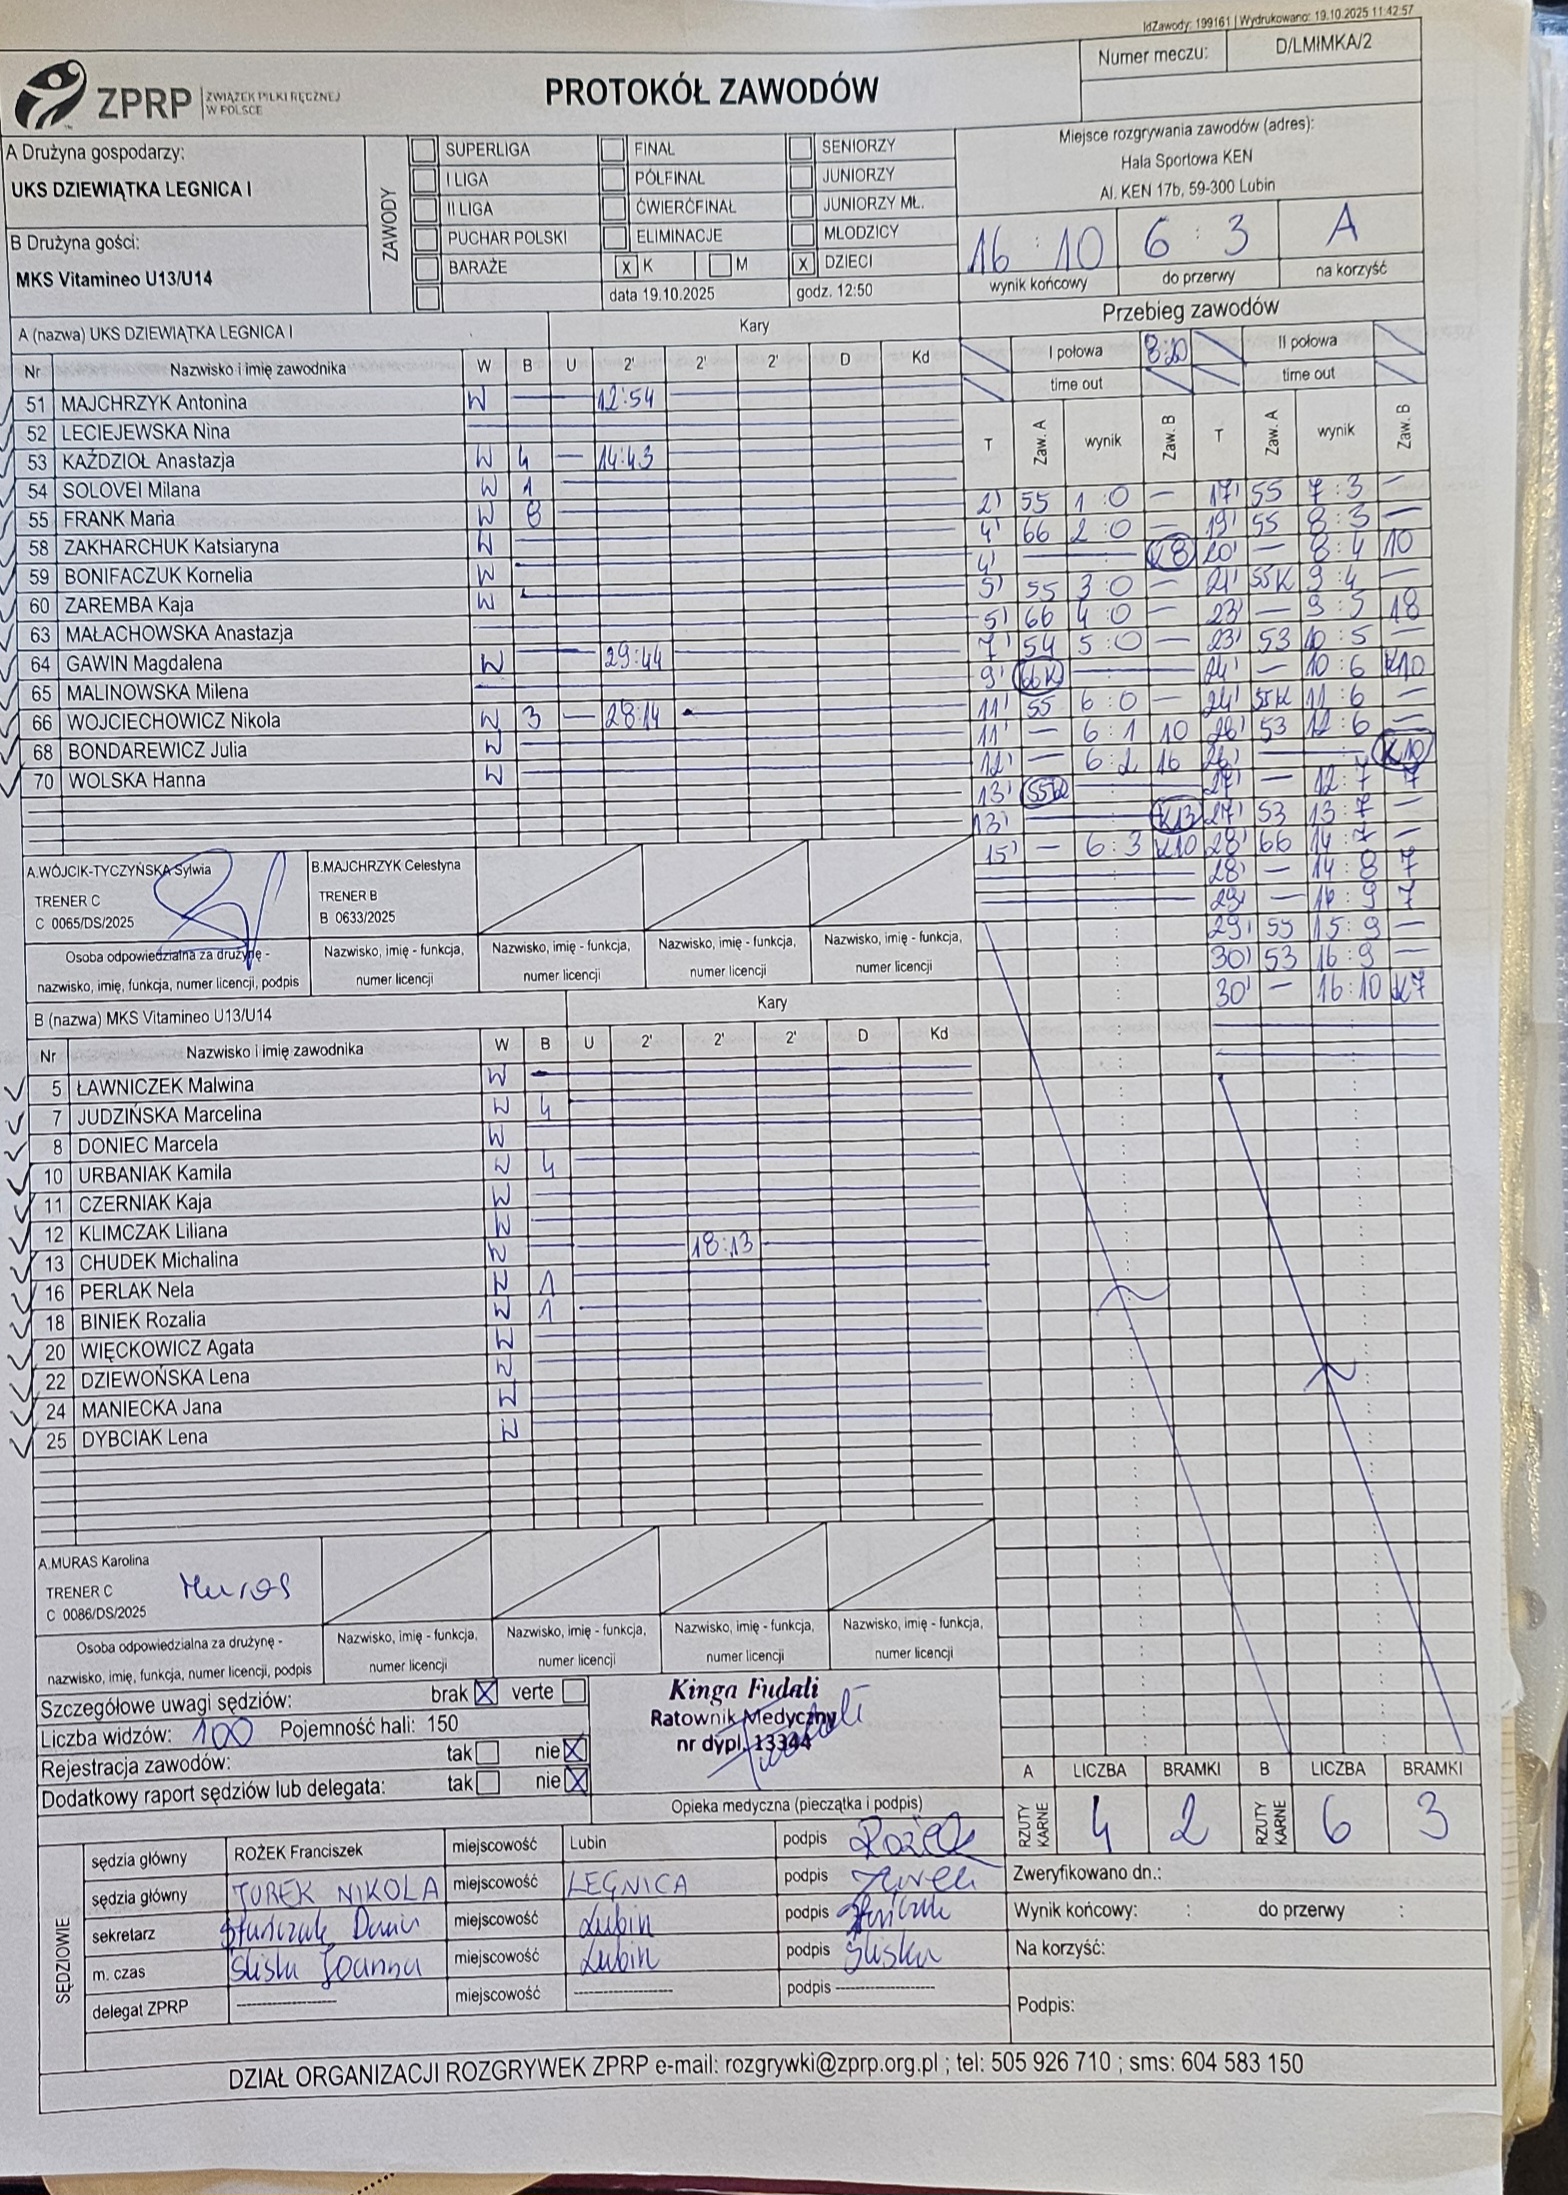 IdZawody: 199161 | Wydrukowano: 19.10.2025 11:42:57
Numer meczu: D/LMłMKA/2
ZPRP ZWIĄZEK PIŁKI RĘCZNEJ
W POLSCE
PROTOKÓŁ ZAWODÓW
A Drużyna gospodarzy:
UKS DZIEWIĄTKA LEGNICA I
B Drużyna gości:
MKS Vitamineo U13/U14
ZAWODY
SUPERLIGA FINAŁ SENIORZY
I LIGA PÓŁFINAŁ JUNIORZY
II LIGA ĆWIERĆFINAŁ JUNIORZY MŁ.
PUCHAR POLSKI ELIMINACJE MŁODZICY
BARAŻE x K M x DZIECI
data 19.10.2025 godz. 12:50
Miejsce rozgrywania zawodów (adres):
Hala Sportowa KEN
Al. KEN 17b, 59-300 Lubin
16 : 10 6 : 3 A
wynik końcowy do przerwy na korzyść
A (nazwa) UKS DZIEWIĄTKA LEGNICA I Kary
Nr Nazwisko i imię zawodnika W B U 2' 2' 2' D Kd
51 MAJCHRZYK Antonina W 12:54
52 LECIEJEWSKA Nina
53 KAŹDZIOŁ Anastazja W 4 - 14:43
54 SOLOVEI Milana W 1
55 FRANK Maria W 8
58 ZAKHARCHUK Katsiaryna W
59 BONIFACZUK Kornelia W
60 ZAREMBA Kaja W
63 MAŁACHOWSKA Anastazja
64 GAWIN Magdalena W 29:44
65 MALINOWSKA Milena
66 WOJCIECHOWICZ Nikola W 3 - 28:14
68 BONDAREWICZ Julia W
70 WOLSKA Hanna W
A.WÓJCIK-TYCZYŃSKA Sylwia
TRENER C
C 0065/DS/2025
Osoba odpowiedzialna za drużynę -
nazwisko, imię, funkcja, numer licencji, podpis
B.MAJCHRZYK Celestyna
TRENER B
B 0633/2025
Nazwisko, imię - funkcja, numer licencji
Nazwisko, imię - funkcja, numer licencji
Nazwisko, imię - funkcja, numer licencji
Nazwisko, imię - funkcja, numer licencji
Przebieg zawodów
I połowa 8:20 II połowa
time out time out
T Zaw. A wynik Zaw. B T Zaw. A wynik Zaw. B
2' 55 1 : 0 - 17' 55 7 : 3 -
4' 66 2 : 0 - 19' 55 8 : 3 -
4' K8 20' - 8 : 4 10
5' 55 3 : 0 - 21' 55K 9 : 4 -
5' 66 4 : 0 - 23' - 9 : 5 18
7' 54 5 : 0 - 23' 53 10 : 5 -
9' 66K 24' - 10 : 6 K10
11' 55 6 : 0 - 24' 55K 11 : 6 -
11' - 6 : 1 10 26' 53 12 : 6 -
12' - 6 : 2 16 26' K10
13' 55K 27' - 12 : 7 7
13' K13 27' 53 13 : 7 -
15' - 6 : 3 K10 28' 66 14 : 7 -
28' - 14 : 8 7
29' - 14 : 9 7
29' 55 15 : 9 -
30' 53 16 : 9 -
30' - 16 : 10 K7
B (nazwa) MKS Vitamineo U13/U14 Kary
Nr Nazwisko i imię zawodnika W B U 2' 2' 2' D Kd
5 ŁAWNICZEK Malwina W
7 JUDZIŃSKA Marcelina W 4
8 DONIEC Marcela W
10 URBANIAK Kamila W 4
11 CZERNIAK Kaja W
12 KLIMCZAK Liliana W
13 CHUDEK Michalina W 18:13
16 PERLAK Nela W 1
18 BINIEK Rozalia W 1
20 WIĘCKOWICZ Agata W
22 DZIEWOŃSKA Lena W
24 MANIECKA Jana W
25 DYBCIAK Lena W
A.MURAS Karolina
TRENER C
C 0086/DS/2025
Muras
Osoba odpowiedzialna za drużynę -
nazwisko, imię, funkcja, numer licencji, podpis
Nazwisko, imię - funkcja, numer licencji
Nazwisko, imię - funkcja, numer licencji
Nazwisko, imię - funkcja, numer licencji
Nazwisko, imię - funkcja, numer licencji
Szczegółowe uwagi sędziów: brak X verte
Liczba widzów: 100 Pojemność hali: 150
Rejestracja zawodów: tak nie X
Dodatkowy raport sędziów lub delegata: tak nie X
Kinga Fudali
Ratownik Medyczny
nr dypl. 13344
Fudali
Opieka medyczna (pieczątka i podpis)
A LICZBA BRAMKI B LICZBA BRAMKI
RZUTY KARNE 4 2 RZUTY KARNE 6 3
SĘDZIOWIE
sędzia główny ROŻEK Franciszek miejscowość Lubin podpis Rożek
sędzia główny TUREK NIKOLA miejscowość LEGNICA podpis Turek
sekretarz miejscowość Lubin podpis
m. czas Śliska Joanna miejscowość Lubin podpis Śliska
delegat ZPRP ---------- miejscowość ---------- podpis ----------
Zweryfikowano dn.:
Wynik końcowy: : do przerwy :
Na korzyść:
Podpis:
DZIAŁ ORGANIZACJI ROZGRYWEK ZPRP e-mail: rozgrywki@zprp.org.pl ; tel: 505 926 710 ; sms: 604 583 150